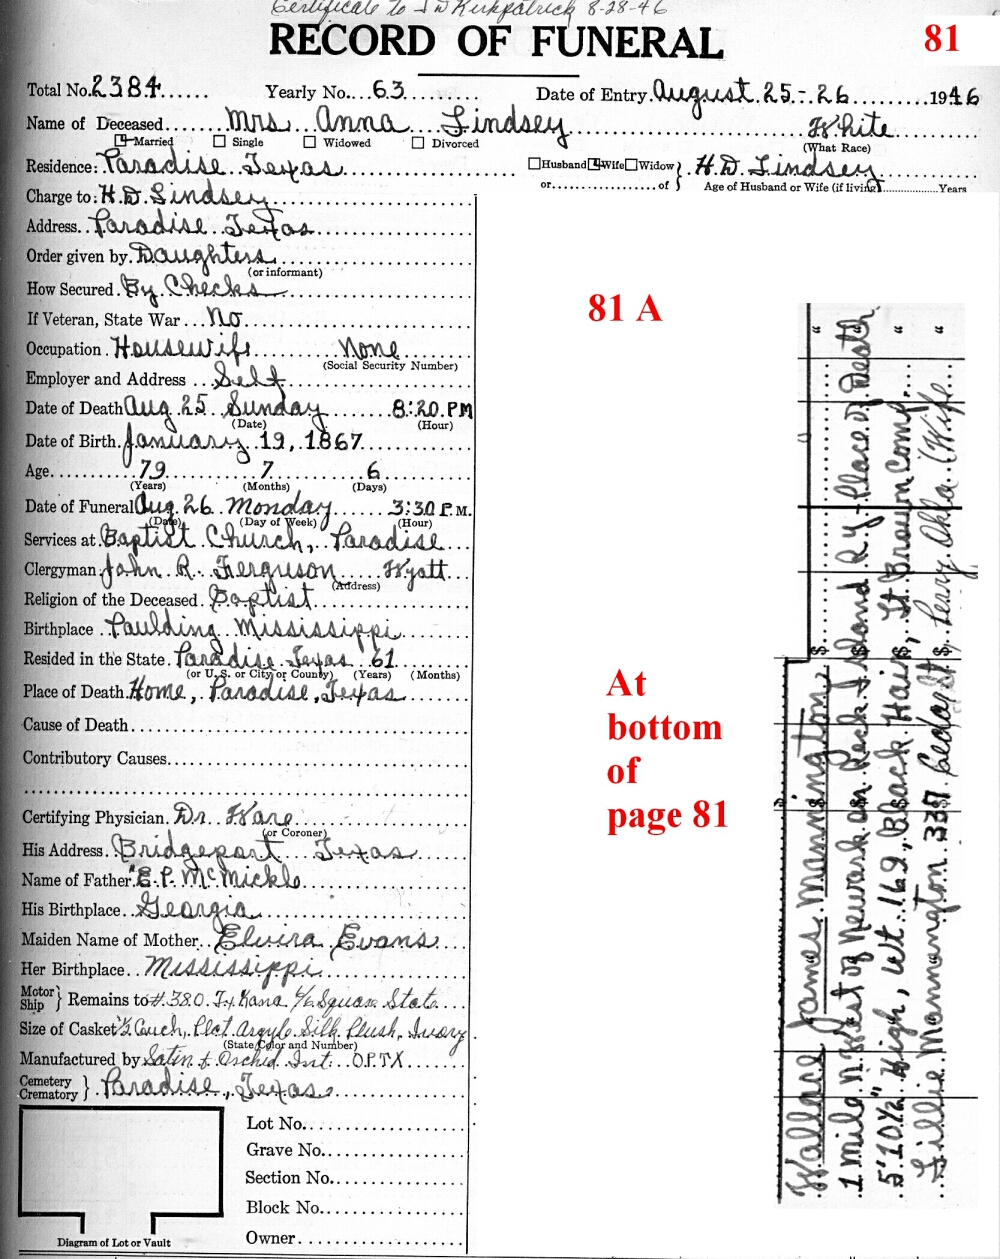 Certificate to J W Kirkpatrick 8-28-46
RECORD OF FUNERAL
81
Total No. 2384 Yearly No. 63 Date of Entry. August 25-26 1946
Name of Deceased Mrs. Anna Lindsey White
Married Single Widowed Divorced (What Race)
Residence: Paradise, Texas Husband Wife Widow } H.D. Lindsey
or of Age of Husband or Wife (if living) Years
Charge to: H.D. Lindsey
Address Paradise Texas
Order given by. Daughters
(or informant)
How Secured. By Checks
If Veteran, State War No
Occupation. Housewife None
(Social Security Number)
Employer and Address Self
Date of Death Aug. 25 Sunday 8:20. PM
(Date) (Hour)
Date of Birth. January 19, 1867
Age 79 7 6
(Years) (Months) (Days)
Date of Funeral Aug. 26 Monday 3:30 P.M.
(Date) (Day of Week) (Hour)
Services at Baptist Church, Paradise
Clergyman John R. Ferguson Wyatt
(Address)
Religion of the Deceased. Baptist
Birthplace Paulding Mississippi
Resided in the State. Paradise Texas 61
(or U.S. or City or County) (Years) (Months)
Place of Death Home, Paradise, Texas
Cause of Death
Contributory Causes
Certifying Physician. Dr. Ware
(or Coroner)
His Address. Bridgeport Texas
Name of Father. E.P. McMickle
His Birthplace Georgia
Maiden Name of Mother Elvira Evans
Her Birthplace Mississippi
Motor
Ship } Remains to #.380. Square State
Size of Casket Couch, Plct. Argyle Silk Plush, Ivory
(State Color and Number)
Manufactured by Satin & Orchid Int. O.P.TX
Cemetery
Crematory } Paradise, Texas
Lot No.
Grave No.
Section No.
Block No.
Owner
Diagram of Lot or Vault
81 A
At
bottom
of
page 81
Wallace James Mannington
1 mile N. West of Newark on Rock Island Ry - Place of Death
5'10½" High, Wt. 162, Black Hair, Lt Brown Comp.
Lillie Mannington 337 Perry, Okla. (Wife